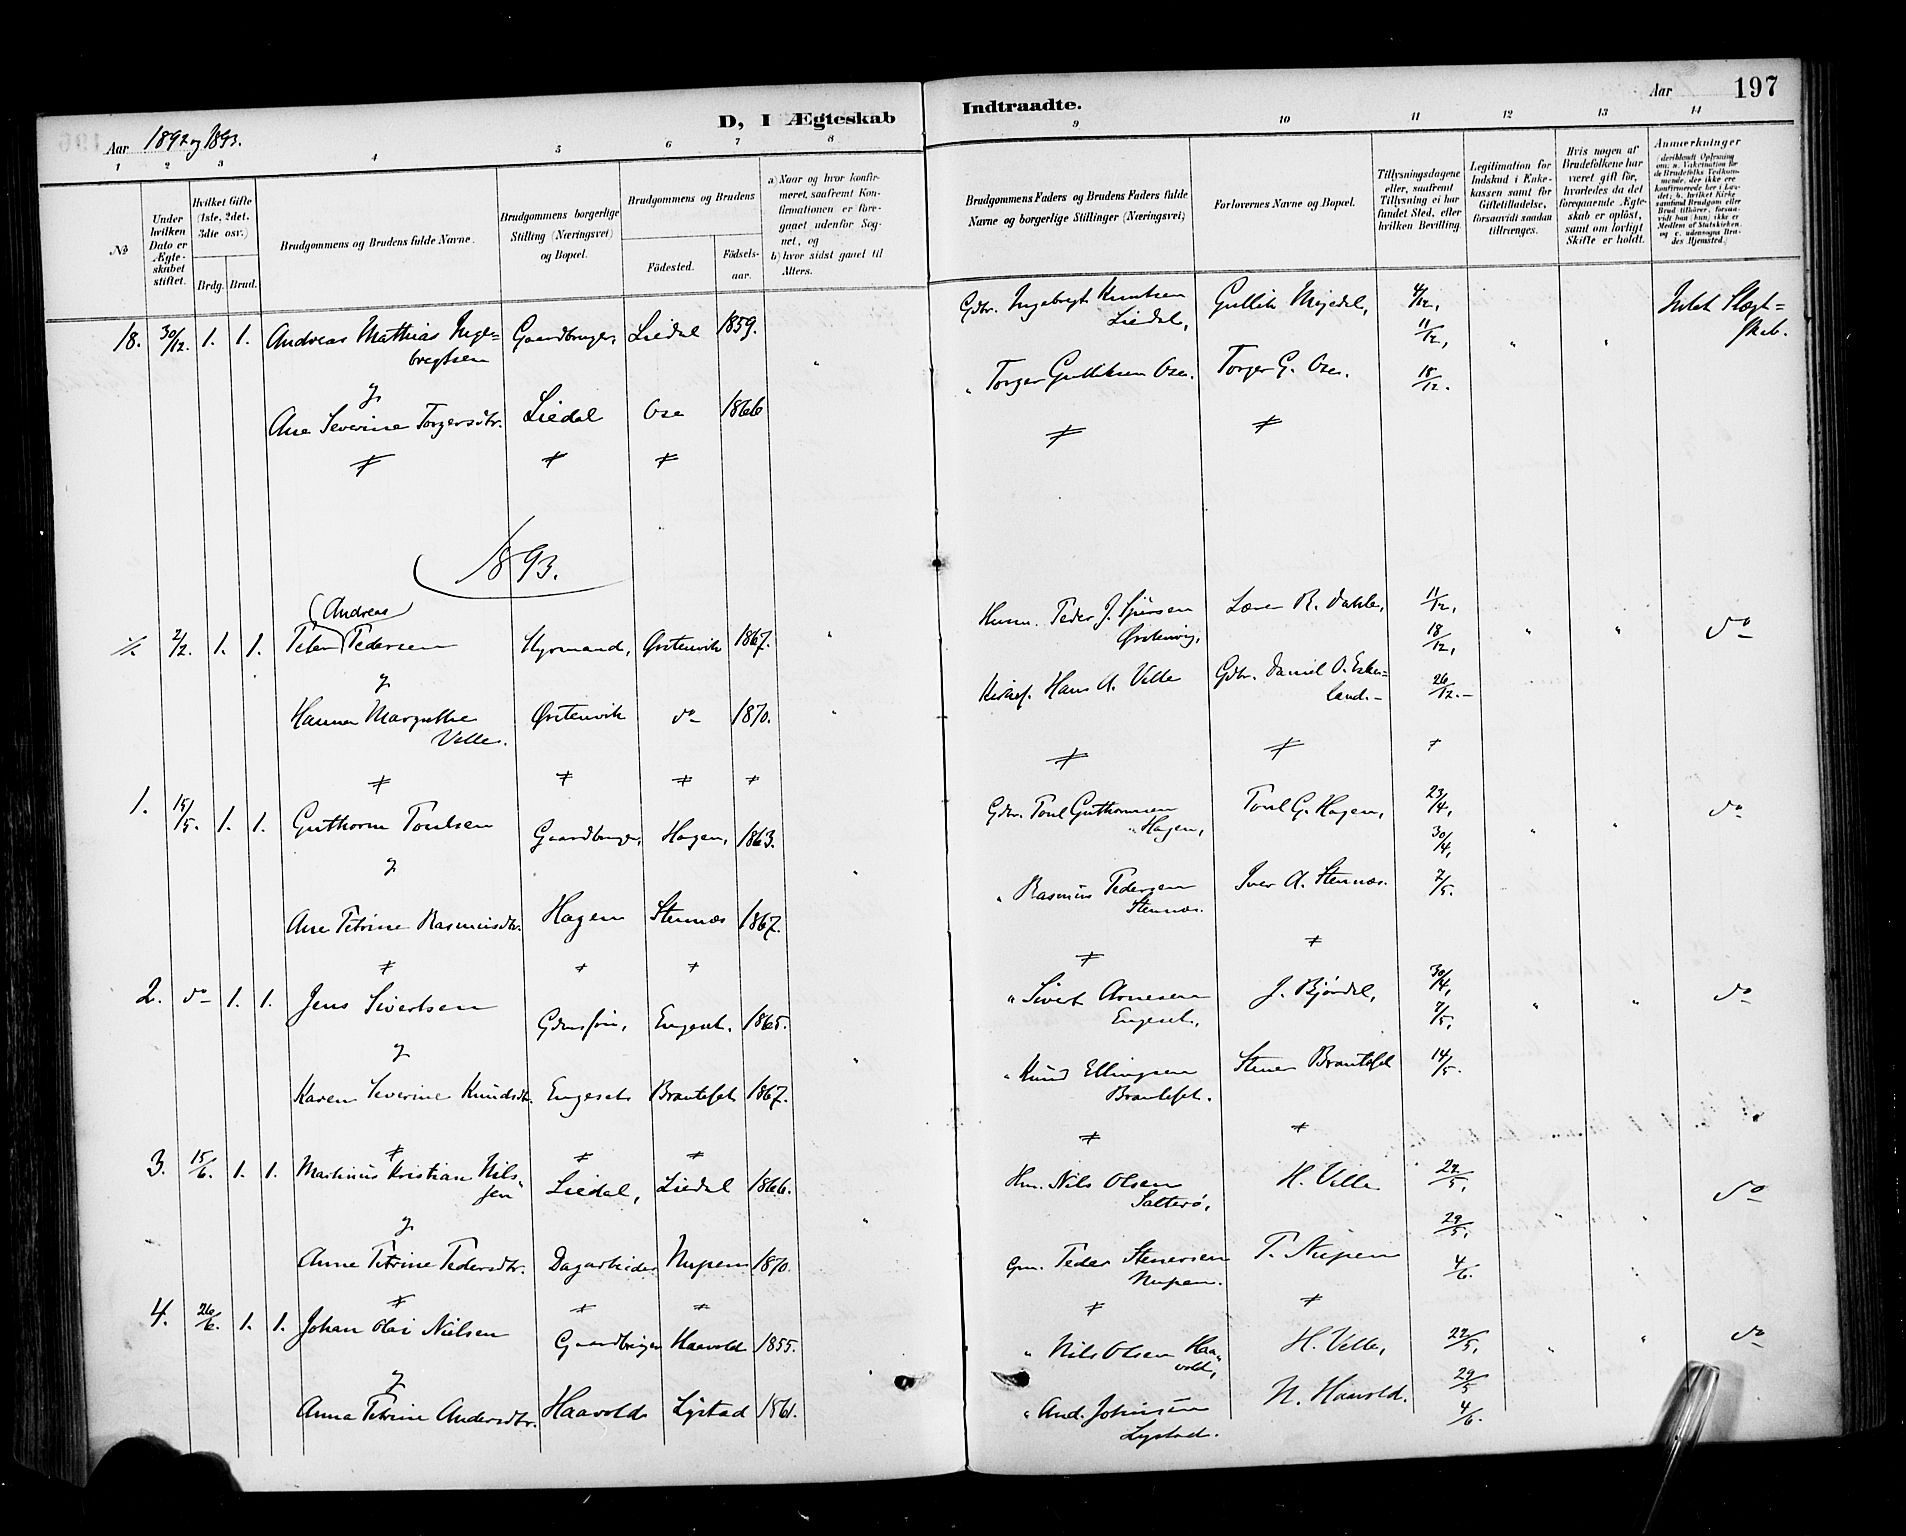 D, I Ægteskab Indtraadte.
Aar 1892 og 1893.
Aar 197
1 2 3 4 5 6 7 8 9 10 11 12 13 14
No
Under hvilken Dato er Ægteskabet stiftet.
Hvilket Gifte (1ste, 2det, 3die osv.)
Brdg. Brud.
Brudgommens og Brudens fulde Navne.
Brudgommens borgerlige Stilling (Næringsvei) og Bopæl.
Brudgommens og Brudens
Födested.
Födselsaar.
a) Naar og hvor konfirmeret, saafremt Konfirmationen er foregaaet udenfor Sognet, og
b) hvor sidst gaaet til Alters.
Brudgommens Faders og Brudens Faders fulde Navne og borgerlige Stillinger (Næringsvei)
Forlovernes Navne og Bopæl.
Tillysningsdagene eller, saafremt Tillysning ei har fundet Sted, efter hvilken Bevilling.
Legitimation for Indskud i Enkekassen samt for Giftetilladelse, forsaavidt saadan tiltrænges.
Hvis nogen af Brudefolkene har været gift för, hvorledes da det foregaaende Ægteskab er oplöst, samt om lovligt Skifte er holdt.
Anmærkninger
18. 30/12. 1. 1. Andreas Mathias Inge=
bregtsen Gaardbruger, Liedal 1859. "
Gdbr. Ingebregt Knutsen
Liedal, Gullik Mejedal, 4/12, 11/12, " " Intet Slægt=
skab.
&
Ane Severine Torgersdtr. Liedal Ose 1866
" Torger Gulliksen Ose. Torger G. Ose. 18/12.
1893.
(Andreas)
1/1. 2/2. 1. 1. Peter Pedersen Styrmand, Ørstenvik 1867. "
Husm. Peder J. Sjursen
Ørstenvig, Lærer R. Dahle, 11/12, 18/12, " " do
&
Hanna Margrethe
Velle. Ørstenvik do 1870. "
Kirkes. Hans A. Velle Gdbr. Daniel O. Eske=
land. 26/12.
1. 15/5. 1. 1. Guthorm Poulsen Gaardbruger, Hagen, 1863.
Gdbr. Poul Guthormsen
Hagen, Poul G. Hagen, 23/4, 30/4, " " do
&
Ane Petrine Rasmusdtr. Hagen Stennæs 1867. "
" Rasmus Pedersen
Stennæs. Iver A. Stennæs. 7/5.
2. do 1. 1. Jens Sivertsen Gdmssøn, Engeset, 1865.
" Sivert Arnesen
Engeset, J. Bjørdal, 30/4, 7/5, " " do
&
Karen Severine Knudsdtr. Engeset Brauteset 1867. "
" Knud Ellingsen
Brauteset. Stener Brauteset 14/5.
3. 15/6. 1. 1. Martinus Kristian Nils=
sen Liedal, Liedal 1866.
Hm. Nils Olsen
Salterø, H. Velle 22/5, do
&
Anne Petrine Pedersdtr. Nupen 1870. "
Gm. Peder Stenersen
Nupen. P. Nupen 29/5, 4/6. " "
4. 26/6. 1. 1. Johan Olai Nielsen Gaardbruger Haavold 1855.
" Nils Olsen Haa=
vold, H. Velle, 22/5, " " do
&
Anna Petrine Andersdtr. Haavold Lystad 1861. "
" And. Johnsen
Lystad. N. Haavold. 29/5 4/6.